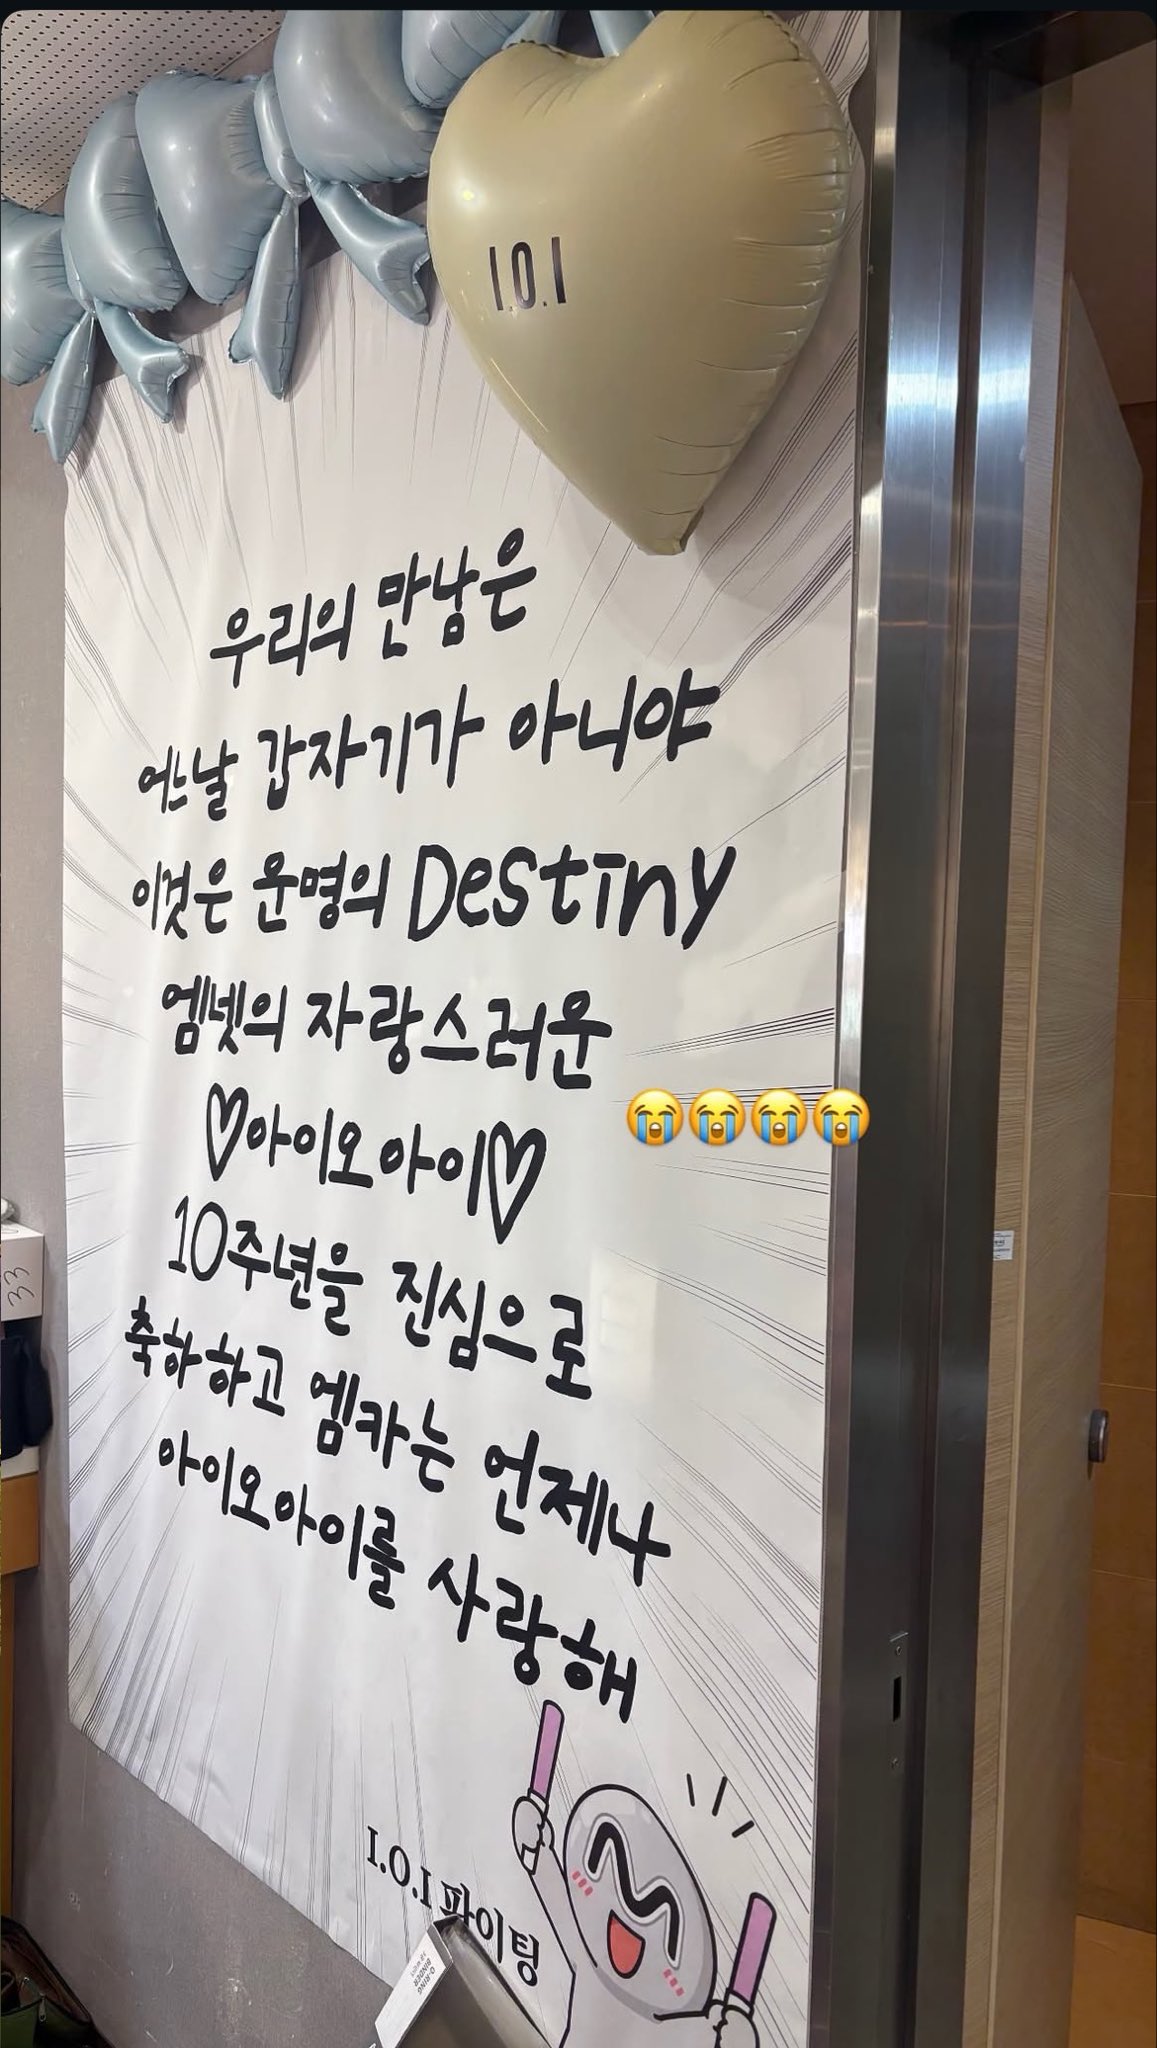 I.O.I
우리의 만남은
어느날 갑자기가 아니야
이것은 운명의 Destiny
엠넷의 자랑스러운
♡아이오아이♡
10주년을 진심으로
축하하고 엠카는 언제나
아이오아이를 사랑해
I.O.I 파이팅
33
O-RING
BINDER